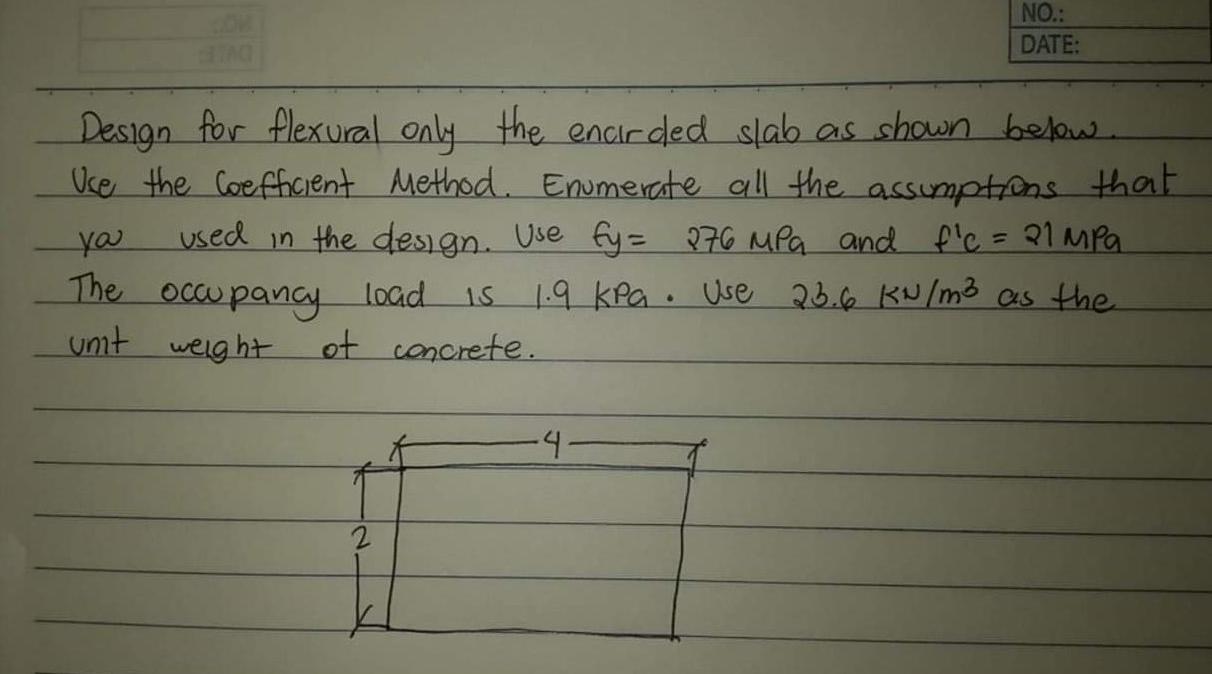 NO.:
DATE:
Design for flexural only the encircled slab as shown below.
Use the Coefficient Method. Enumerate all the assumptions that
you used in the design. Use fy = 276 MPa and f'c = 21 MPa
The occupancy load is 1.9 kPa. Use 23.6 KN/m³ as the
unit weight of concrete.
4
2